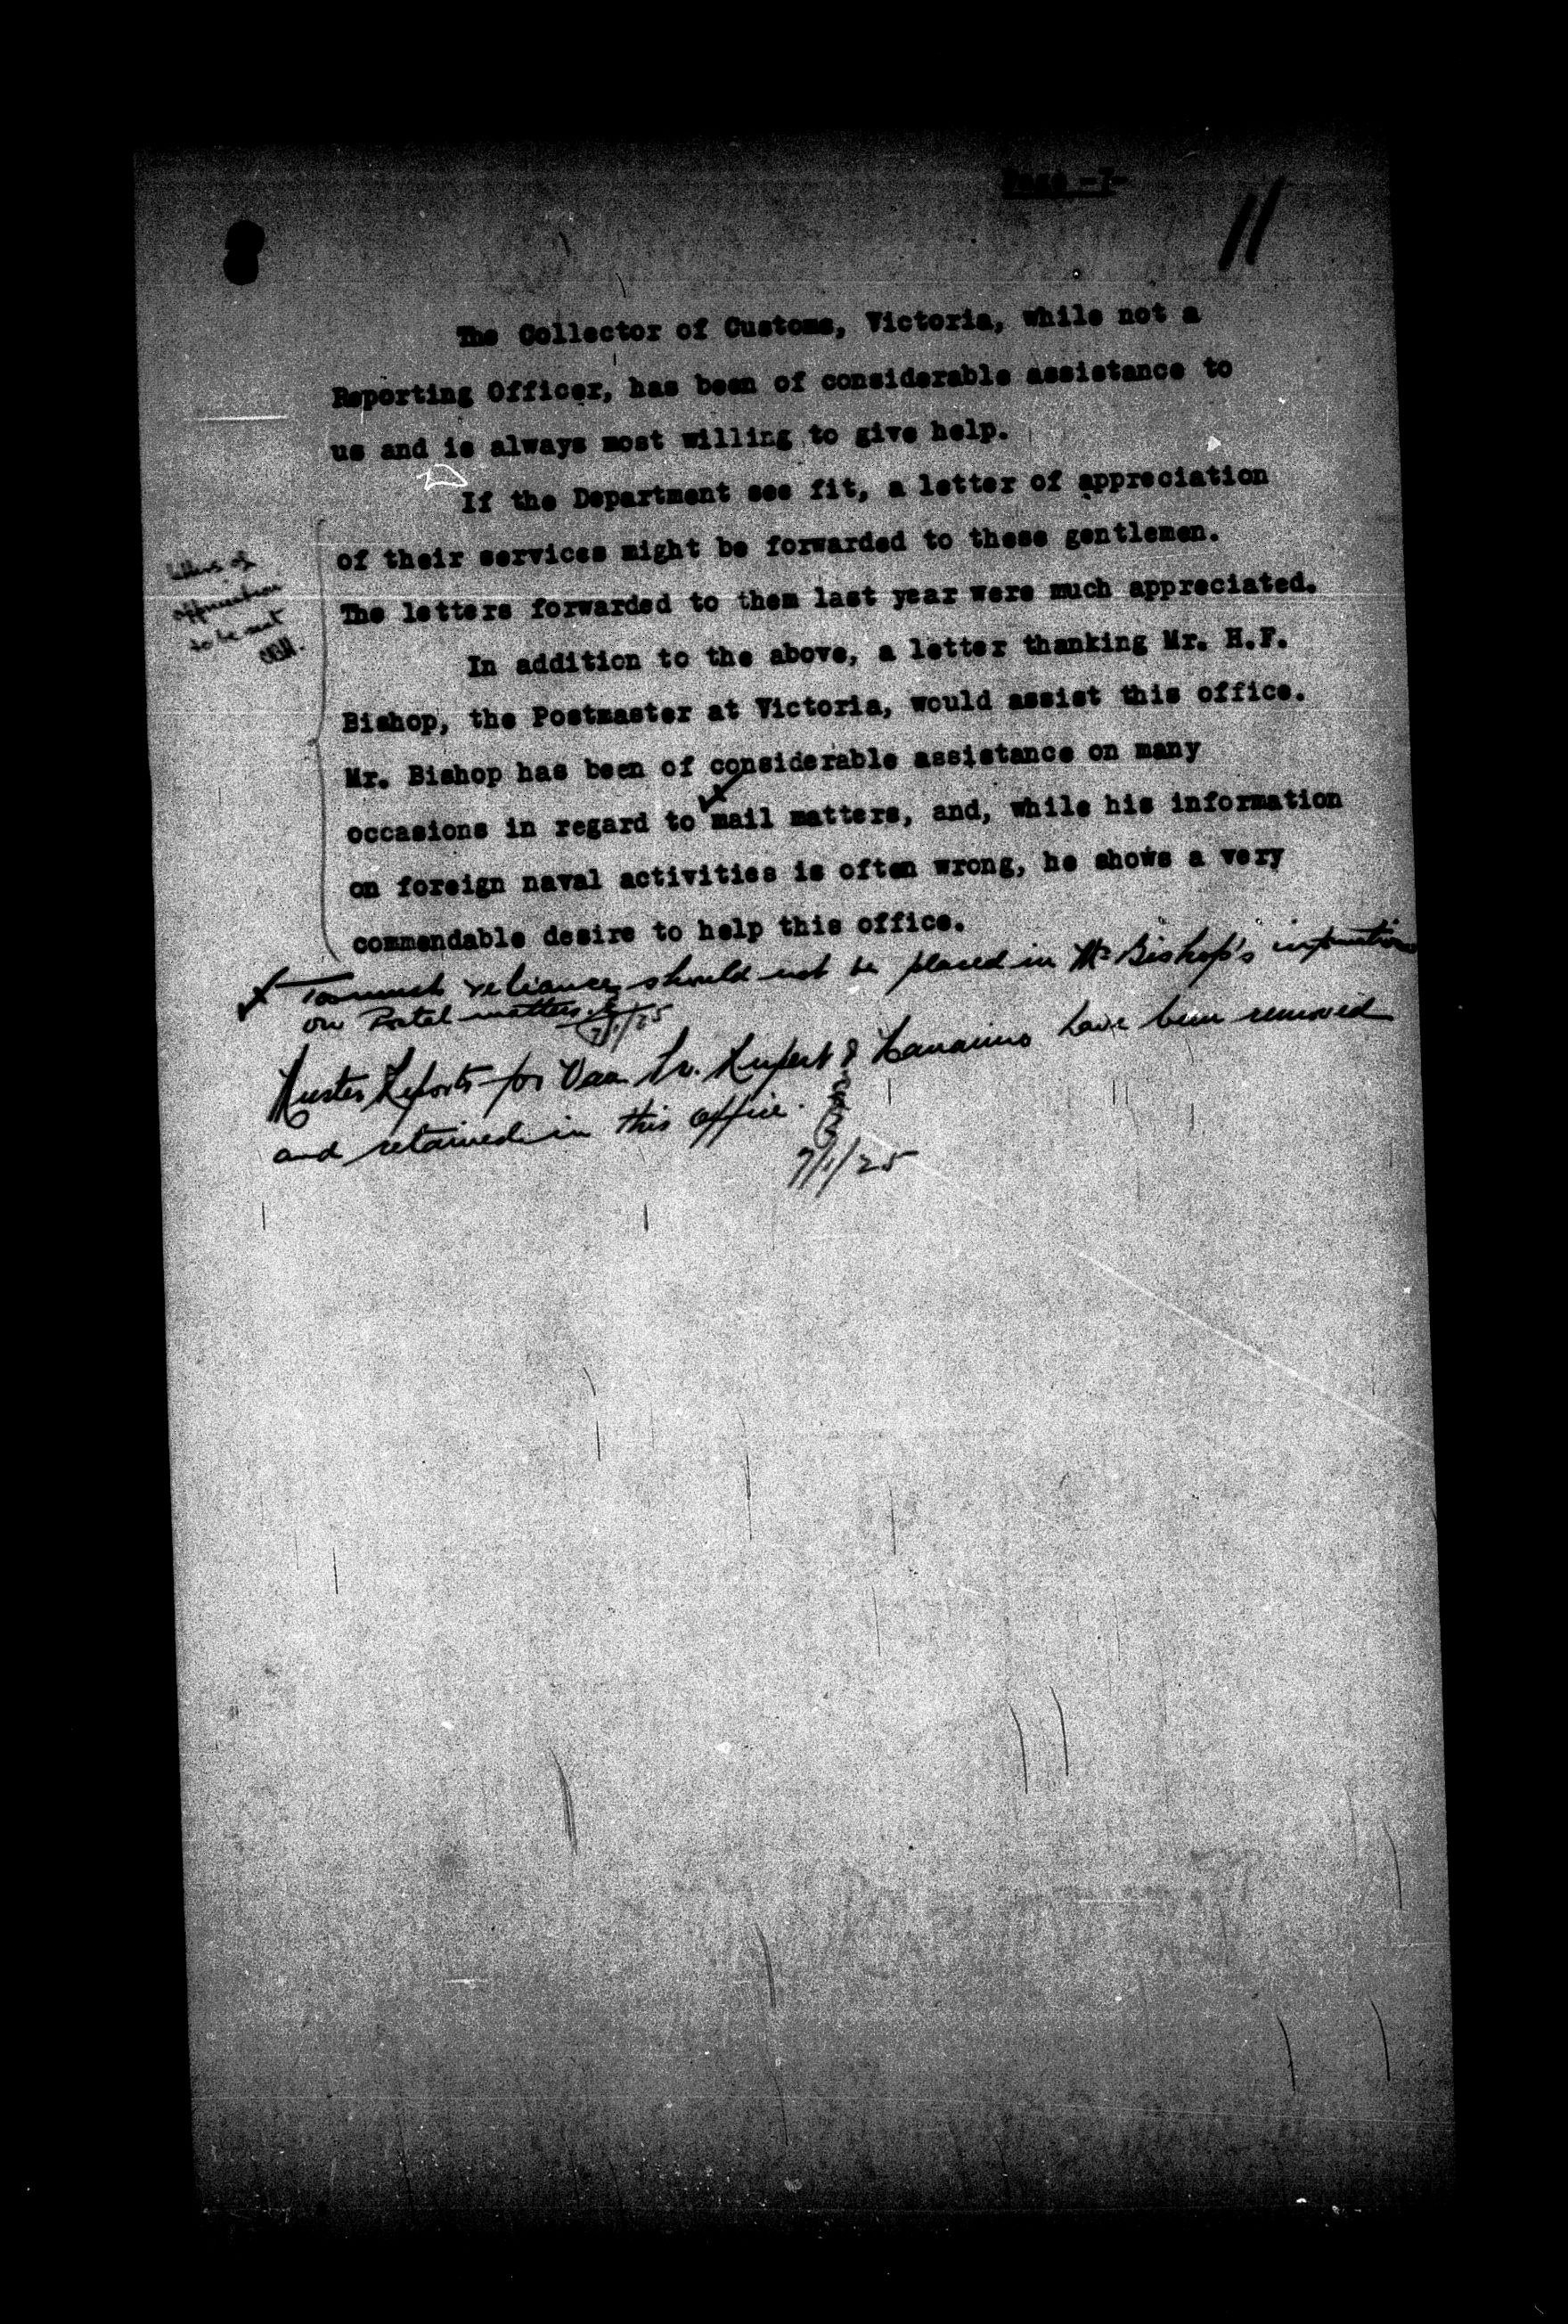 Page -7-
11
The Collector of Customs, Victoria, while not a
Reporting Officer, has been of considerable assistance to
us and is always most willing to give help.
If the Department see fit, a letter of appreciation
of their services might be forwarded to these gentlemen.
The letters forwarded to them last year were much appreciated.
letters of
appreciation
to be sent
In addition to the above, a letter thanking Mr. H.F.
Bishop, the Postmaster at Victoria, would assist this office.
Mr. Bishop has been of considerable assistance on many
occasions in regard to mail matters, and, while his information
on foreign naval activities is often wrong, he shows a very
commendable desire to help this office.
Too much reliance should not be placed in Mr Bishop's information
on Postal matters.
7/1/25
Muster Reports for Van. Pr. Rupert & Nanaimo have been removed
and retained in this office.
7/1/25